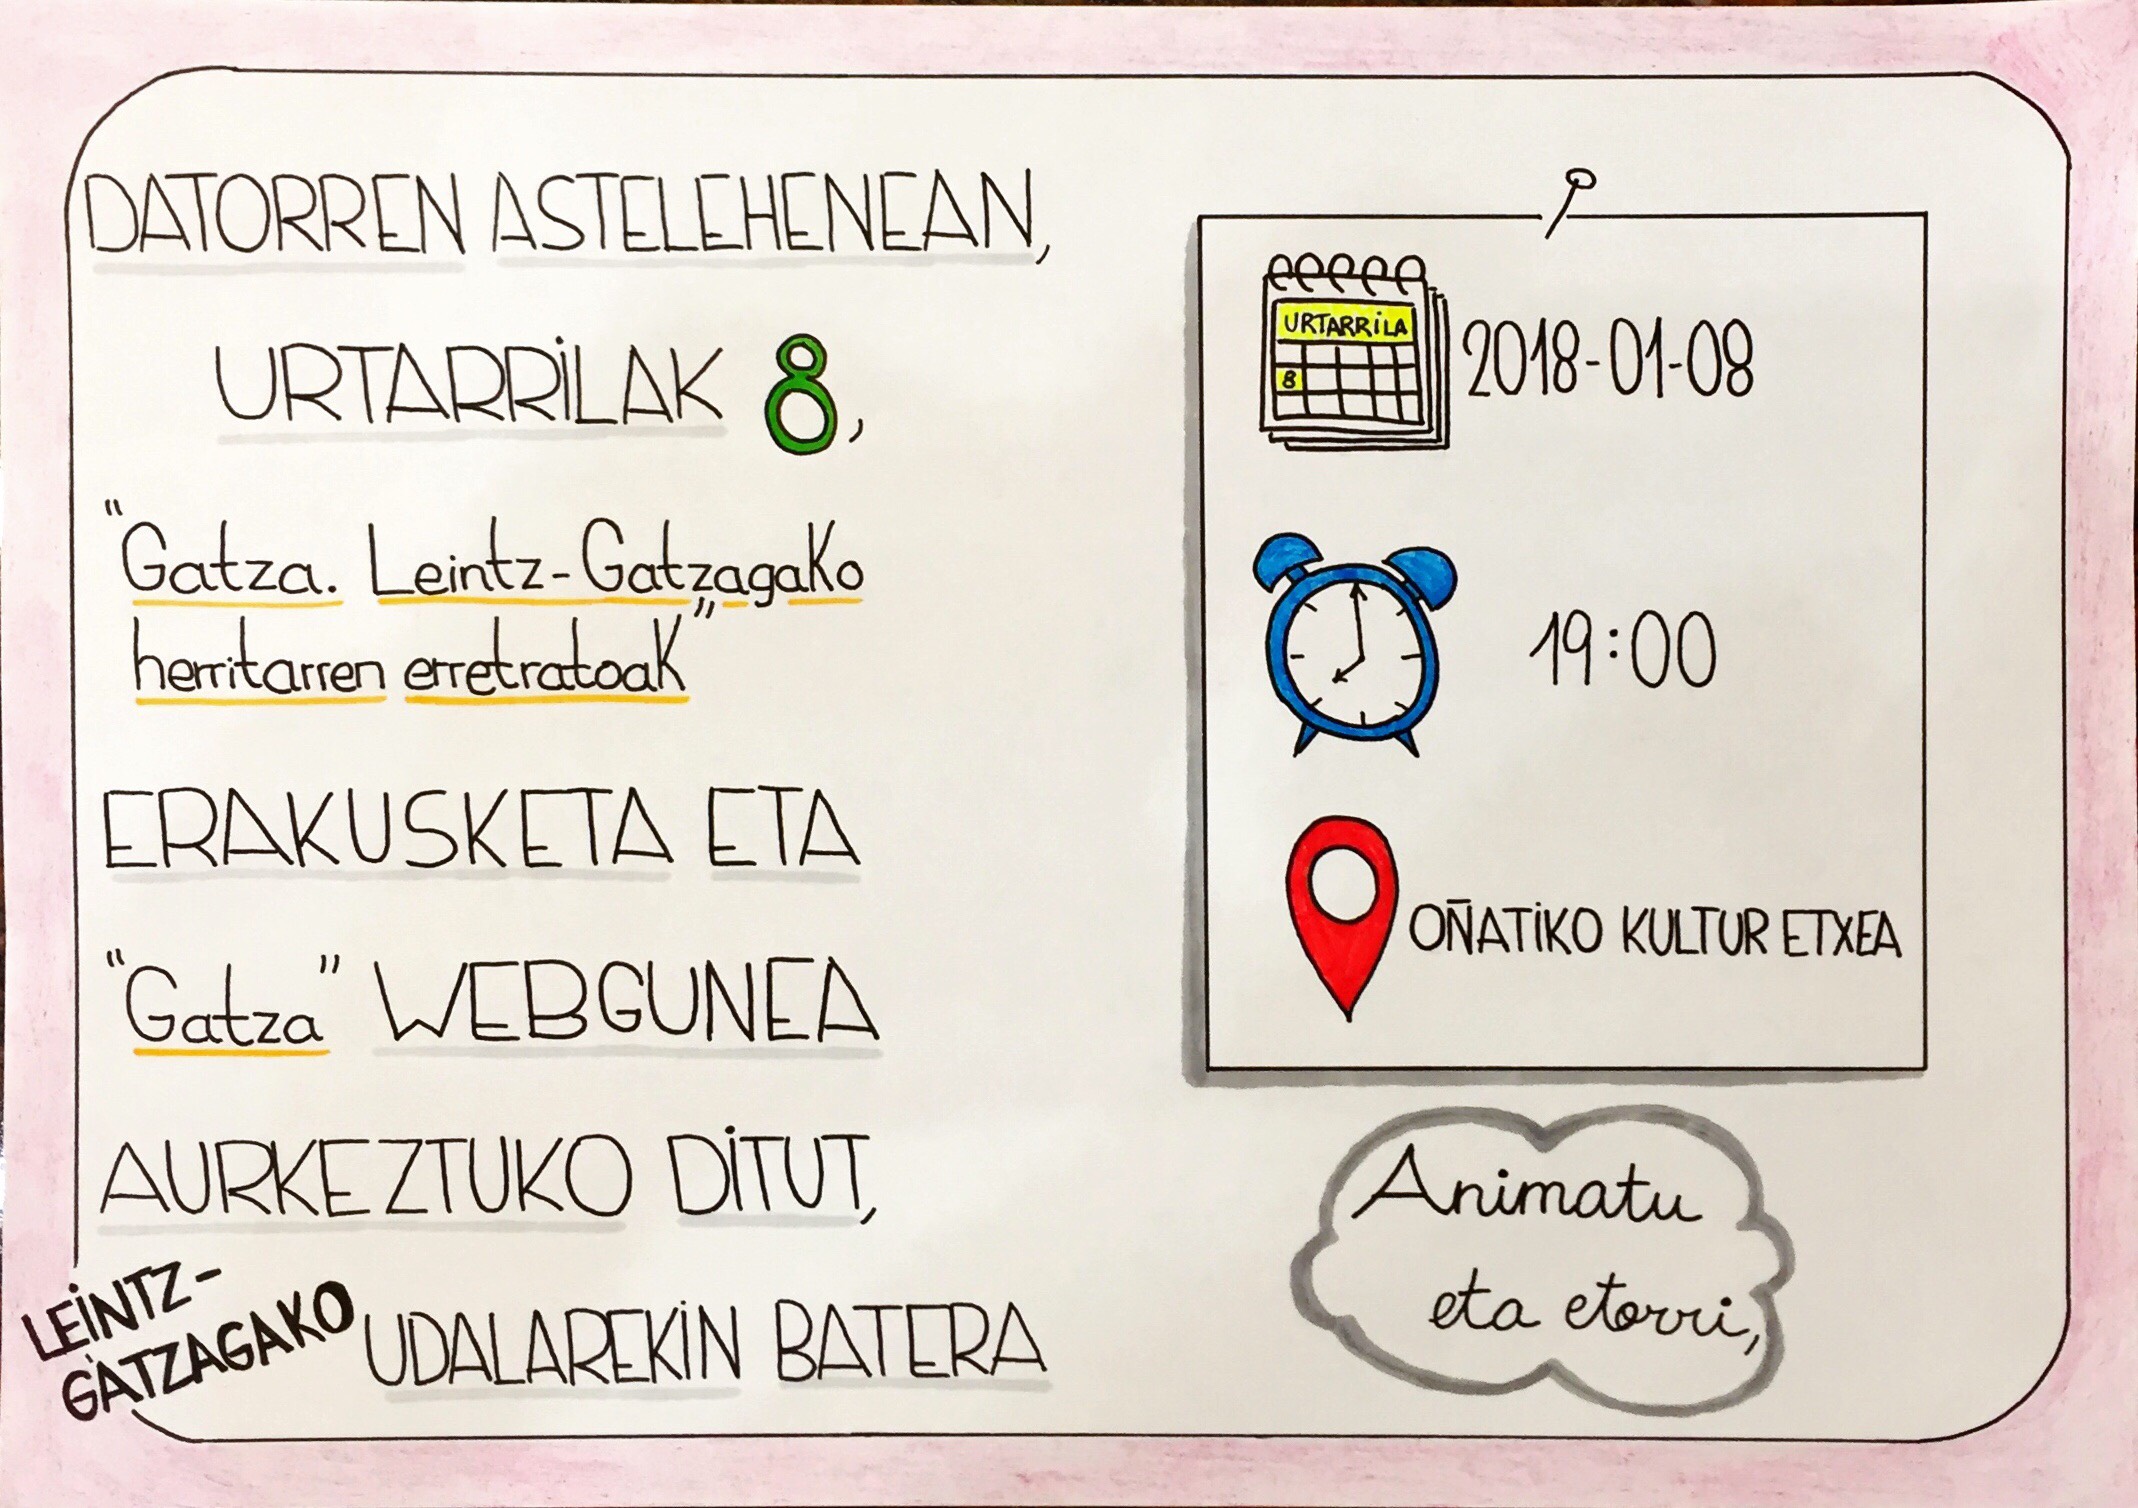 DATORREN ASTELEHENEAN,
URTARRiLAK 8,
"Gatza. Leintz-Gatzagako
herritarren erretratoak"
ERAKUSKETA ETA
"Gatza" WEBGUNEA
AURKEZTUKO DiTUT,
LEiNTZ-
GATZAGAKO
UDALAREKiN BATERA
URTARRiLA
8
2018-01-08
19:00
OÑATiKO KULTUR ETXEA
Animatu
eta etorri,